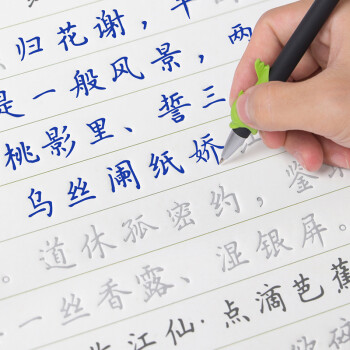 归花谢,
是一般风景,两
桃影里、誓三
乌丝阑纸娇
。道休孤密约,鉴
一丝香露、湿银屏。
江仙·点滴芭蕉